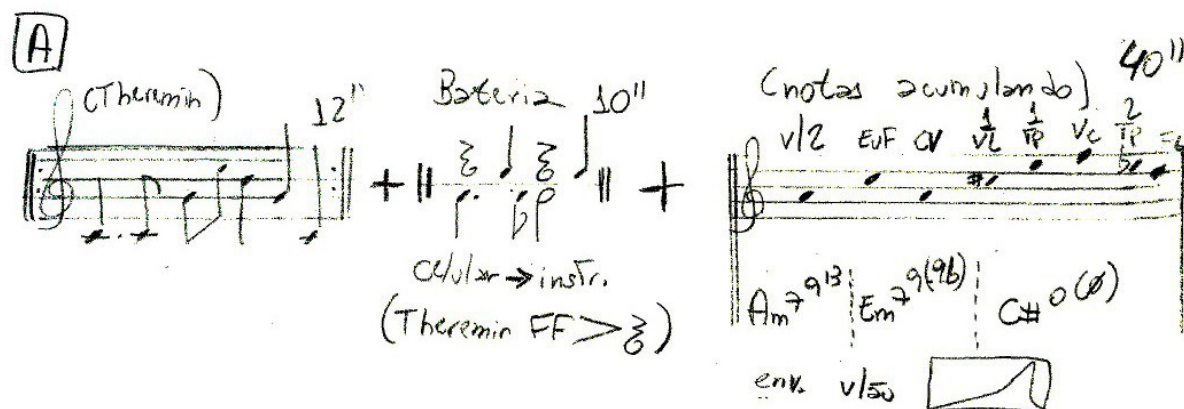 A
(Theremin) 12"
Bateria 10"
Celular → instr.
(Theremin FF >
(notas acumulando) 40"
v/2 EuF CV 1 VL 1 TP Vc 2 TP
Am7 9 13 Em7 9(9b) C# o (ø)
env. v/50